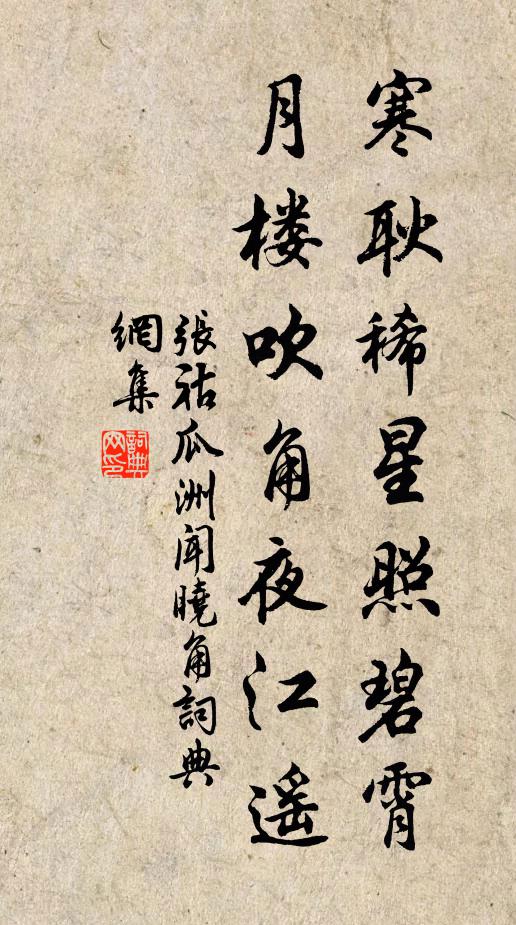 寒耿稀星照碧霄
月楼吹角夜江遥
張祜瓜洲闻曉角詞典
網集
詞典网印